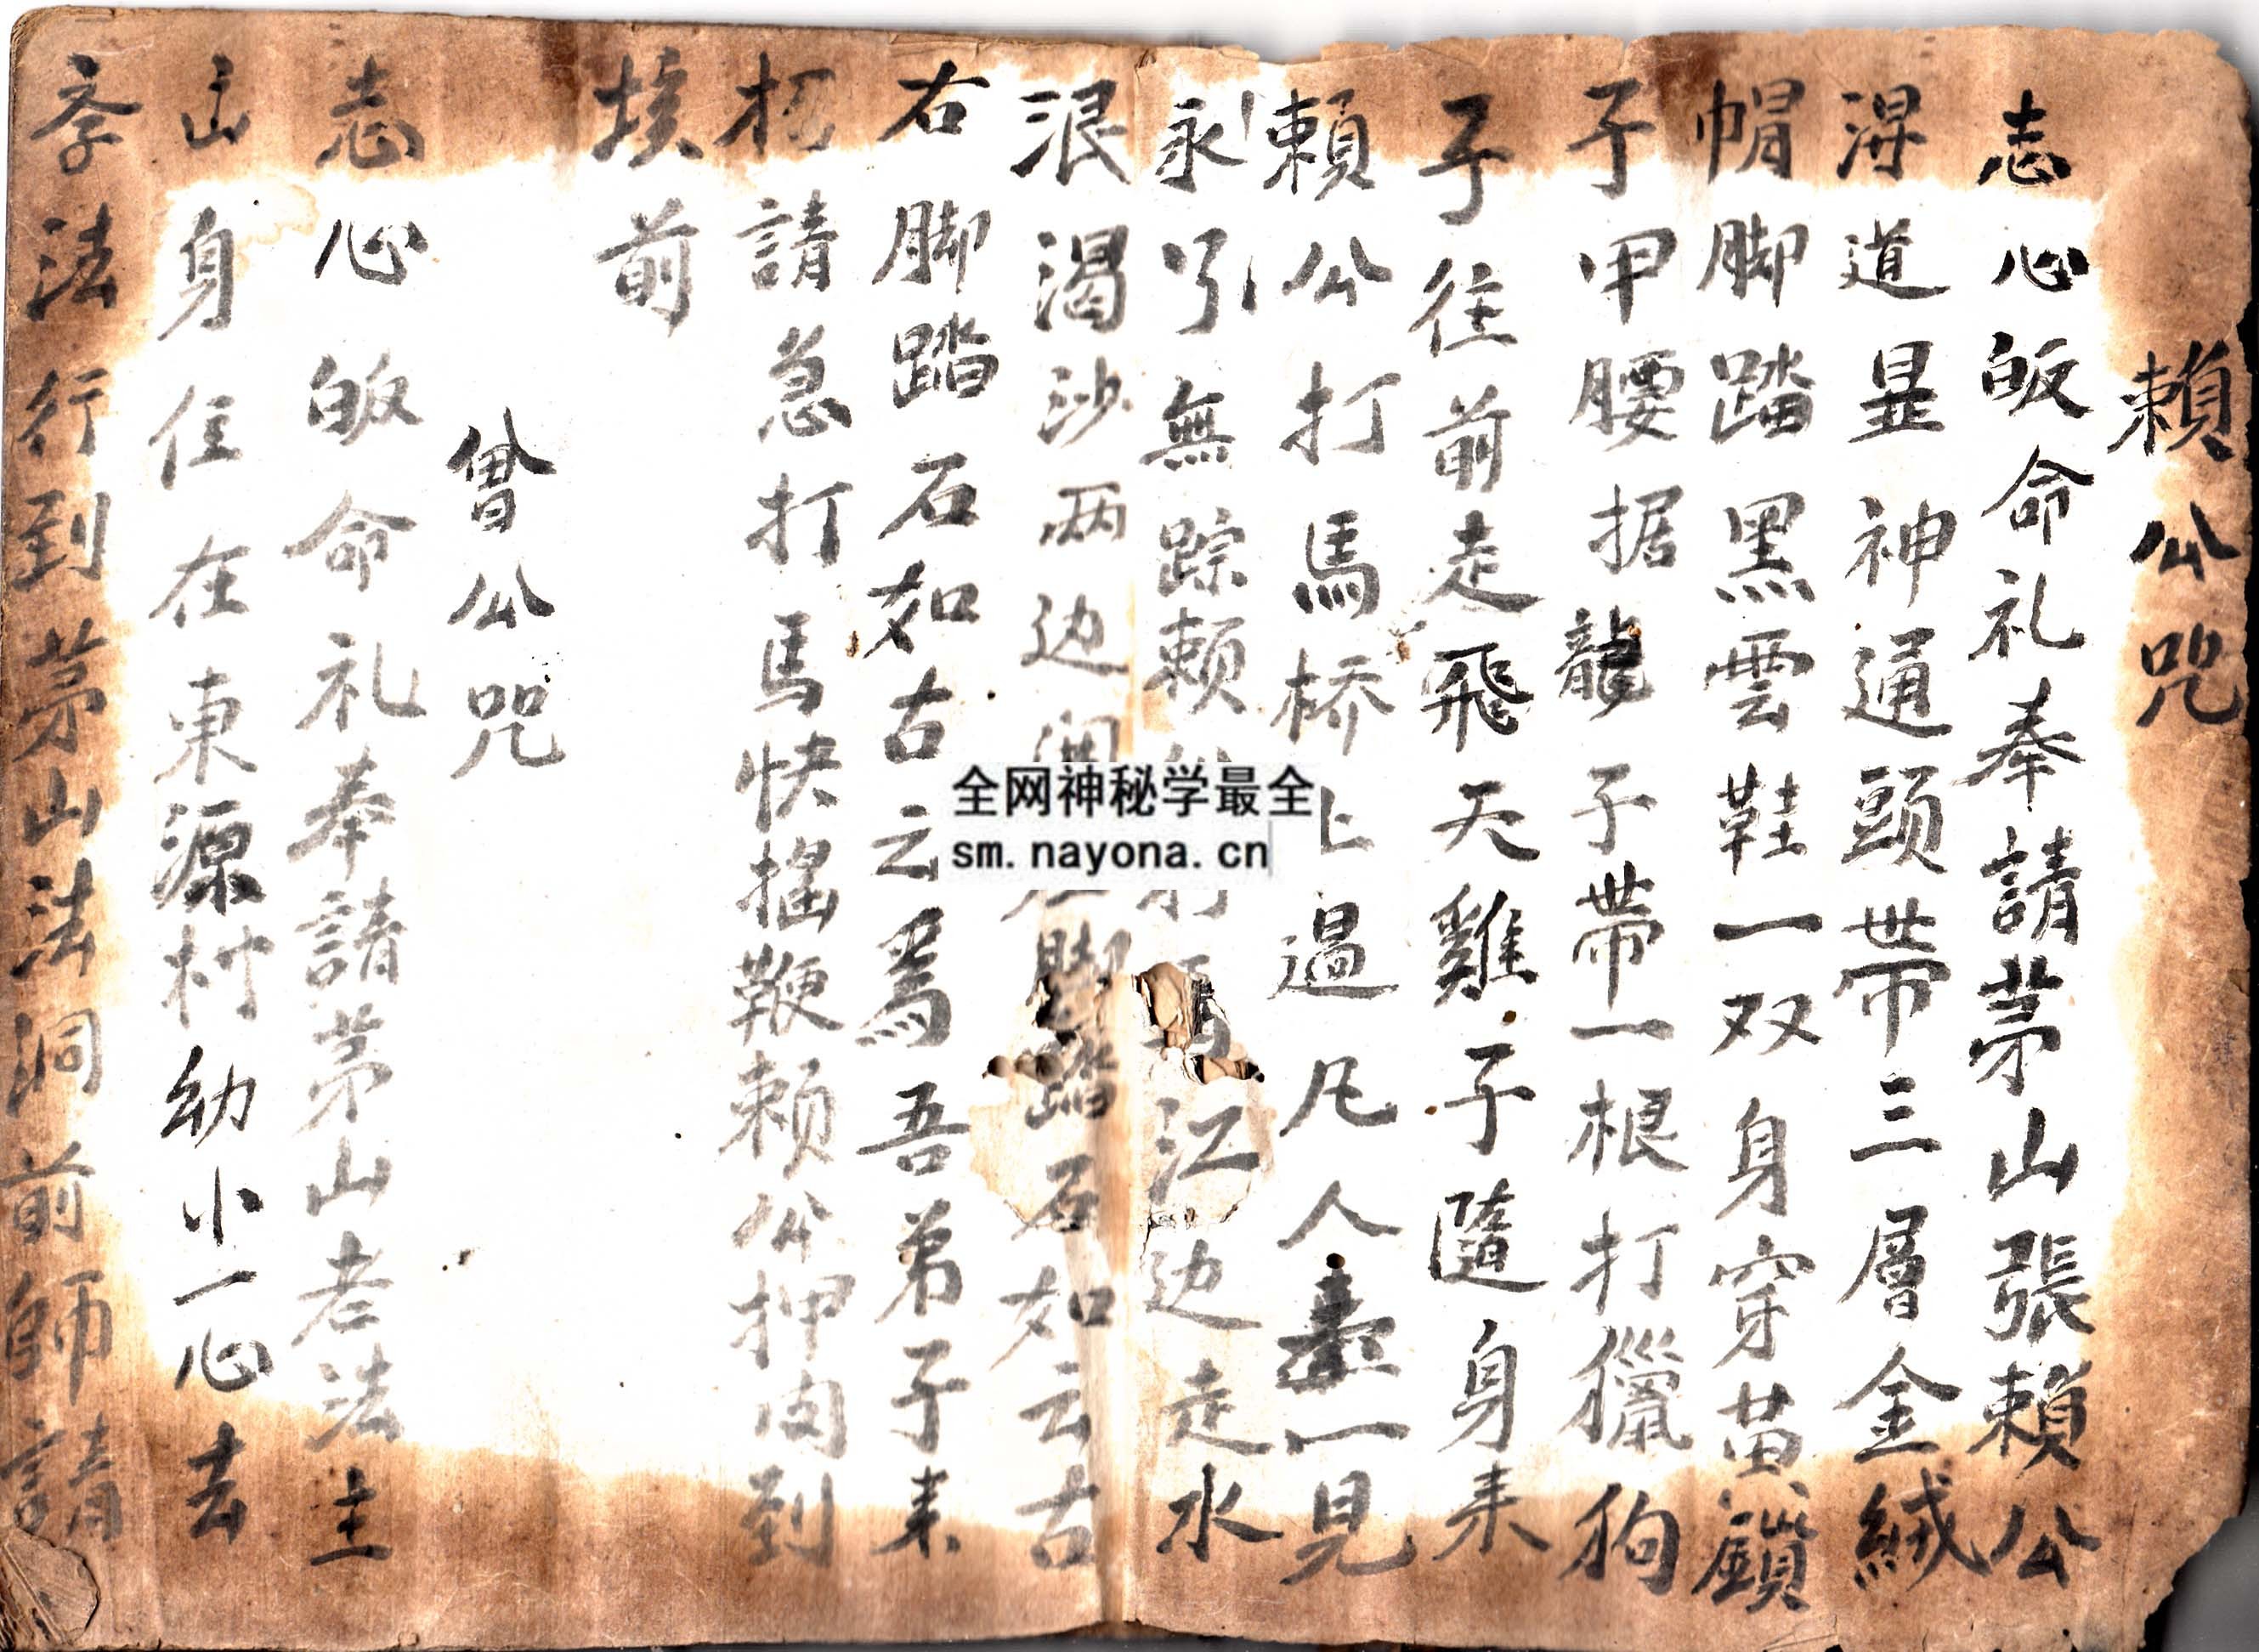 賴公咒
志心皈命礼奉請茅山張賴公
淂道显神通頭帶三層金絨
帽脚踏黑雲鞋一双身穿黄鎖
子甲腰据龍子帶一根打獵狗
子往前走飛天雞子隨身来
賴公打馬桥上過凡人一見
永引無踪賴江边走水
浪渴沙两边脚踏石如云古
右脚踏石如古云焉吾弟子来
招請急打馬快摇鞭赖公押肉到
埃前
曾公咒
志心皈命礼奉請茅山老法主
山身住在東源村幼小一心去
斈法行到茅山法洞前師請
全网神秘学最全
sm.nayona.cn